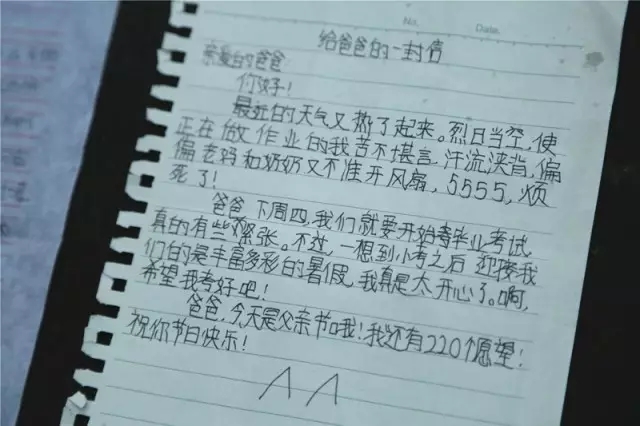 No.  Date.
给爸爸的一封信
亲爱的爸爸
你好！
最近的天气又热了起来。烈日当空，使
正在做作业的我苦不堪言，汗流浃背，偏
偏老妈和奶奶又不准开风扇，5555，烦
死了！
爸爸，下周四，我们就要开始毕业考试，
真的有些紧张。不过，一想到小考之后迎接我
们的是丰富多彩的暑假，我真是太开心了。啊，
希望我考好吧！
爸爸，今天是父亲节哦！我还有220个愿望！
祝你节日快乐！